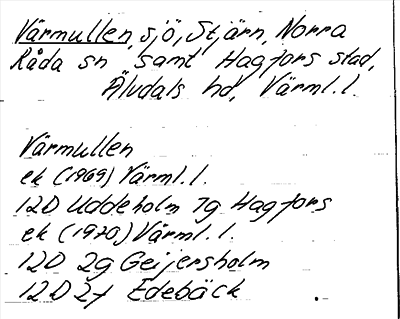 Värmullen, sjö, Stjärn, Norra
Råda sn samt Hagfors stad,
Älvdals hd, Värml.l.
Värmullen
ek (1969) Värml.l.
12D Uddeholm 1g Hagfors
ek (1970) Värml.l.
12D 2g Geijersholm
12D 2f Edebäck